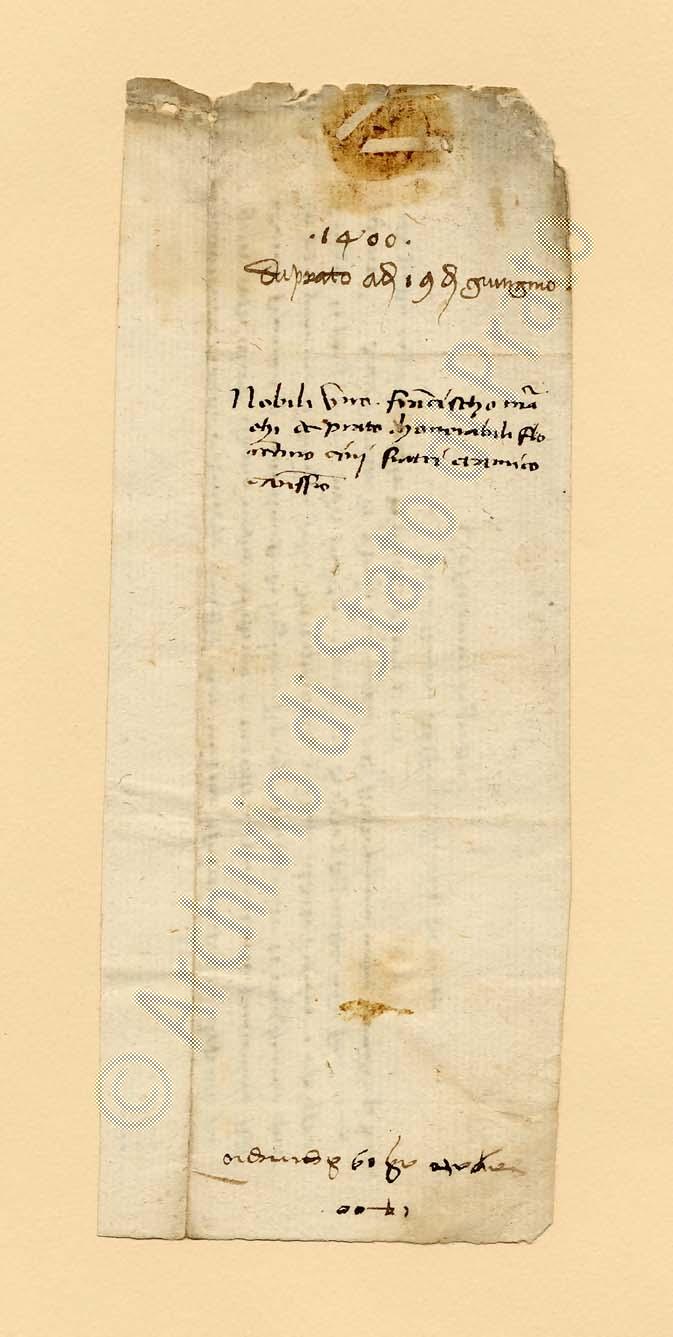 ·1400·
Da prato adi 19 di giungnio.
Nobili viro. francischo mar
chi de prato honorabili flo
rentino civi fratri et amico
carissimo
adi 19 giungnio
1400
© Archivio di Stato di Prato